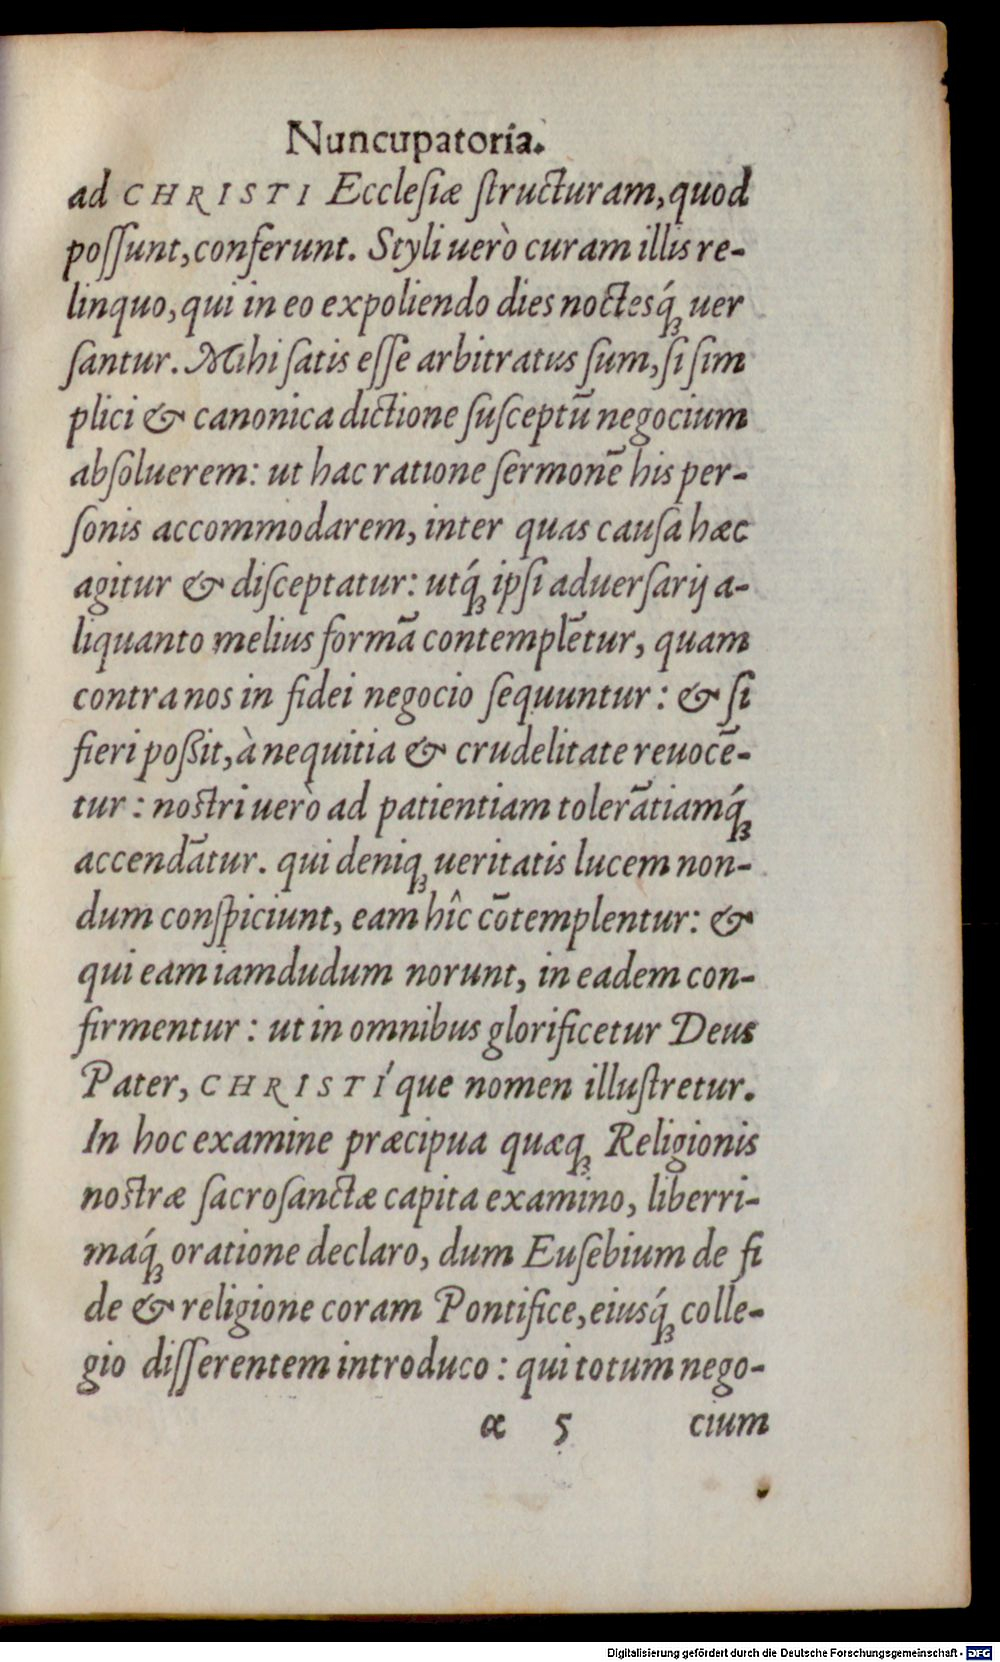 Nuncupatoria.
ad CHRISTI Ecclesiæ ſtructuram, quod
poſſunt, conferunt. Styli uerò curam illis re-
linquo, qui in eo expoliendo dies noctesq́ꝫ uer
ſantur. Mihi ſatis eſſe arbitratus ſum, ſi ſim
plici & canonica dictione ſuſceptū negocium
abſoluerem: ut hac ratione ſermonē his per-
ſonis accommodarem, inter quas cauſa hæc
agitur & diſceptatur: utq́ꝫ ipſi aduerſarij a-
liquanto melius formā contemplētur, quam
contra nos in fidei negocio ſequuntur: & ſi
fieri poßit, à nequitia & crudelitate reuocē-
tur: noſtri uerò ad patientiam tolerātiamq́ꝫ
accendātur. qui deniqꝫ ueritatis lucem non-
dum conſpiciunt, eam hîc cōtemplentur: &
qui eam iamdudum norunt, in eadem con-
firmentur: ut in omnibus glorificetur Deus
Pater, CHRISTÍque nomen illuſtretur.
In hoc examine præcipua quæqꝫ Religionis
noſtræ ſacroſanctæ capita examino, liberri-
maq́ꝫ oratione declaro, dum Euſebium de fi
de & religione coram Pontifice, eiusq́ꝫ colle-
gio diſſerentem introduco: qui totum nego-
α 5 cium
Digitalisierung gefördert durch die Deutsche Forschungsgemeinschaft - DFG